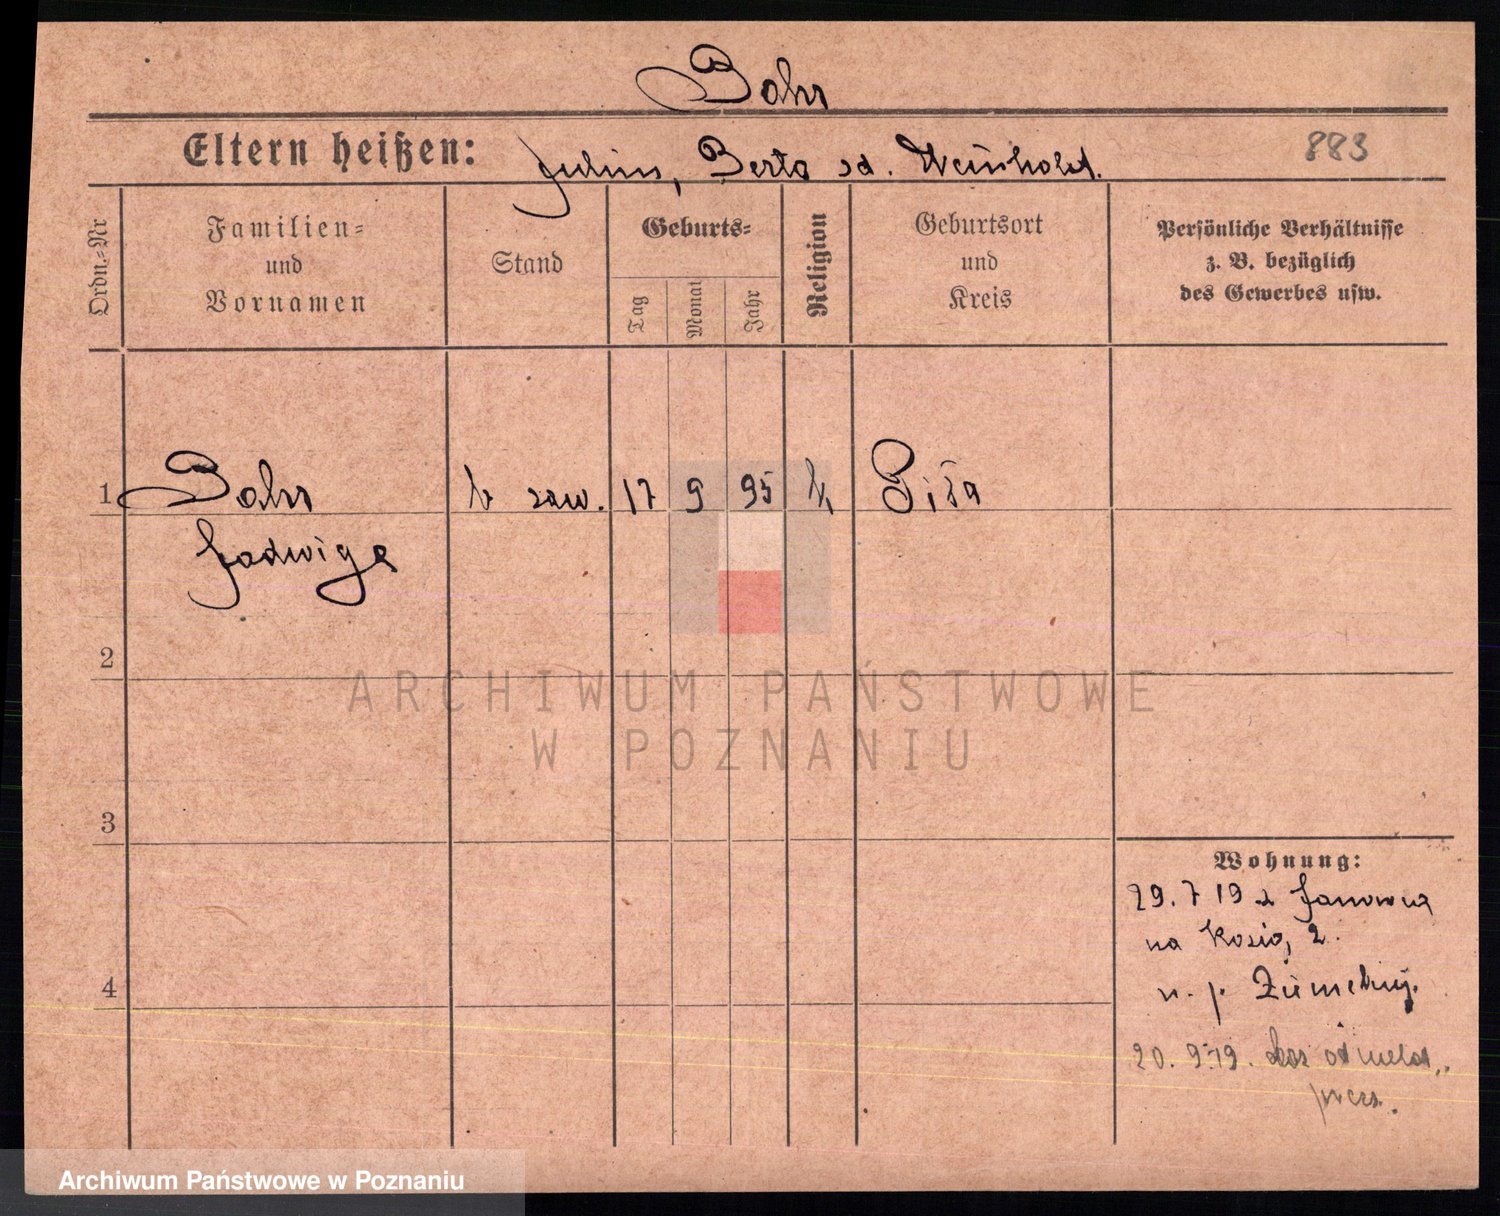 Bahr
Eltern heißen: Julius, Berta zd. Weinhold.
883
Ordn.-Nr
Familien-
und
Vornamen
Stand
Geburts-
Tag
Monat
Jahr
Religion
Geburtsort
und
Kreis
Persönliche Verhältnisse
z. B. bezüglich
des Gewerbes usw.
1 Bahr b zaw. 17 9 95 Piła
Jadwiga
2
ARCHIWUM PAŃSTWOWE
W POZNANIU
3
Wohnung:
29. 7 19 z Janowca
na 2.
4
n. p.
20. 9. 19.
Archiwum Państwowe w Poznaniu